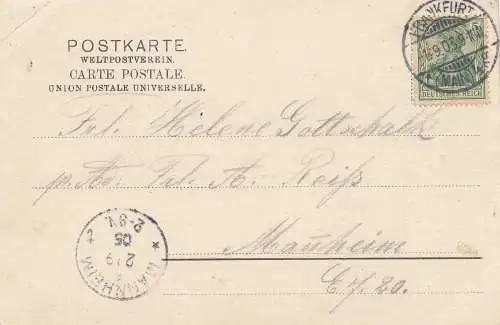 POSTKARTE.
WELTPOSTVEREIN.
CARTE POSTALE.
UNION POSTALE UNIVERSELLE.
FRANKFURT
(MAIN)
DEUTSCHES REICH
Frl. Helene Gottschalk
p. Adr. Frl. A. Reiß
Mannheim
E 7. 20.
MANNHEIM
2/9
05
2-8V